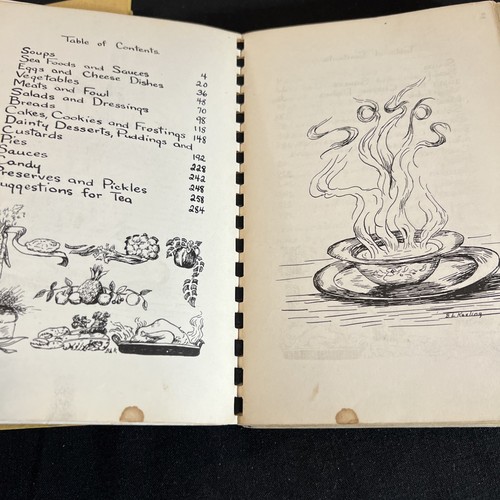 Table of Contents
Soups 4
Sea Foods and Sauces 20
Eggs and Cheese Dishes 36
Vegetables 48
Meats and Fowl 70
Salads and Dressings 98
Breads 118
Cakes, Cookies and Frostings 148
Dainty Desserts, Puddings and
Custards 192
Pies 228
Sauces 242
Candy 248
Preserves and Pickles 258
uggestions for Tea 284
B.L. Keeling